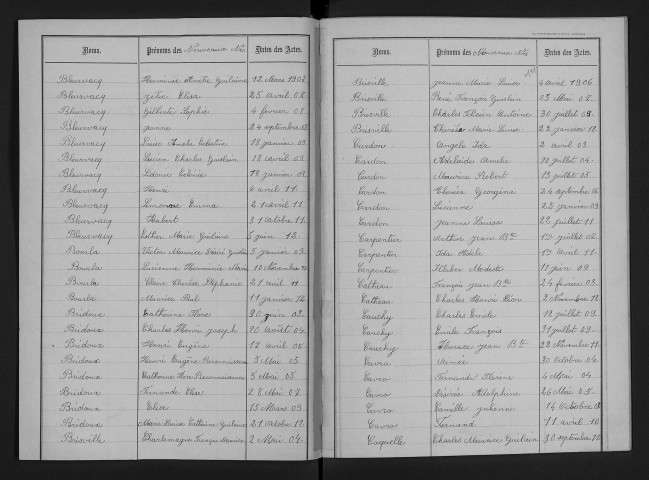 Noms. Prénoms des Nouveaux Nés Dates des Actes.
Bleurvacq Herminie Amélie Guilaine 12 Mars 1902
Bleurvacq Zélie Elisa 25 avril 02.
Bleurvacq Gilberte Sophie 4 février 08
Bleurvacq Jeanne 24 septembre
Bleurvacq Luise Amelie Célestine 18 janvier 09.
Bleurvacq Lucien Charles Guislain 18 avril 09.
Bleurvacq Edouar 18 janvier 09.
Bleurvacq Henri 6 avril 11.
Bleurvacq Léonore Emma 21 avril 11.
Bleurvacq Herbert 31 octobre 11.
Bleurvacq Esther Marie Guilaine 5 juin 12.
Bourla Victor Maurice Désiré 5 janvier 09.
Bourla Lucienne Herminie Marie 10 Novembre
Bourla Claire Thérèse Stéphanie 21 avril 11
Bourla Maurice Paul 11 janvier 12
Bridoux Catherine Flore 30 juin 03.
Bridoux Charles Henri Joseph 20 août 04.
Bridoux Henri Eugène 12 avril 05
Bridoux Henri Eugène Reconnaissance 5 Mai 05.
Bridoux Catherine Flore Reconnaissance 5 Mai 05.
Bridoux Fernande Elise 28 Mai 07.
Bridoux Elise 15 Mars 09
Bridoux Marie Louise Catherine Guilaine 21 octobre 12.
Brisville Charlemagne François Maurice 2 Mai 04.
Noms. Prénoms des Nouveaux Nés Dates des Actes.
Brisville Jeanne Marie Louise 4 avril 1906
Brisville René François Guislain 25 Mai 07.
Brisville Charles Ghislain Antoine 30 juillet 09.
Brisville Thérésa Marie Louise 22 janvier 12.
Cardon Angèle Ida 2 avril 03.
Cardon Adelaïde Amelie 10 juillet 04.
Cardon Maurice Robert 13 juillet 05.
Cardon Georgina 24 septembre 06
Cardon Lucienne 23 janvier 09
Cardon Jeanne Louise 22 juillet 11.
Carpentier Arthur Jean Bte 1er juillet 02.
Carpentier Ida Adèle 1er avril 11.
Carpentier Modeste 11 juin 09.
Catheau François Jean Bte 24 février 03.
Catheau Charles Henri Léon 2 Novembre 12
Cauchy Charles Emile 12 juillet 09.
Cauchy Emile François 31 juillet 09.
Cauchy Horace Jean Bte 22 Novembre 11.
Cavro Aimée 30 octobre 04.
Cavro Fernande 4 Mai 04.
Cavro Désirée Adolphine 26 Mai 05.
Cavro Camille Julienne 14 octobre
Cavro Fernand 11 avril 10
Coquelle Charles Maurice Guilain 30 septembre 11.